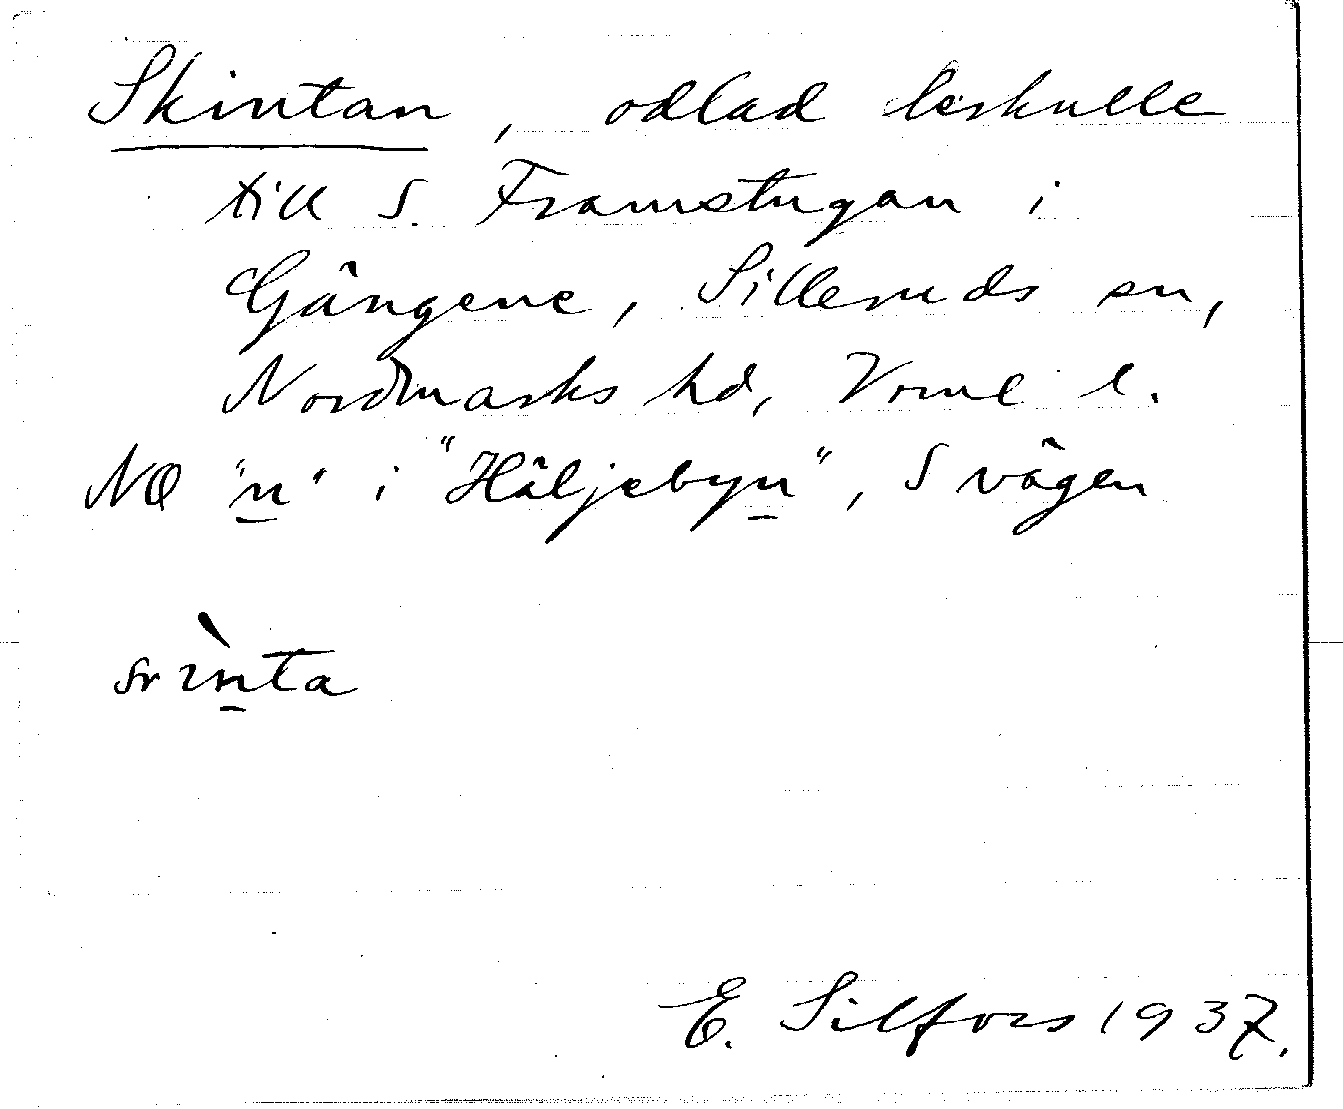 Skintan, odlad lerkulle
till S. Framstugan i
Gängene, Silleruds sn,
Nordmarks hd, Vrml l.
NO "n" i "Häljebyn", S vägen
E. Silfors 1937.